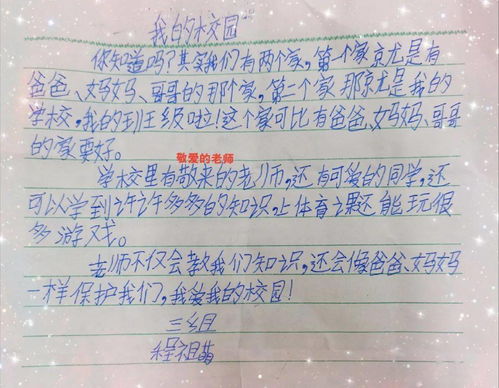 我的校园
你知道吗?其实我们有两个家,第一个家就是有
爸爸、妈妈、哥哥的那个家,第二个家那就是我的
学校,我的班级啦!这个家可比有爸爸、妈妈、哥哥
的家要好。
敬爱的老师
学校里有敬来的老师,还有可爱的同学,还
可以学到许许多多的知识,上体育课还能玩很
多游戏。
老师不仅会教我们知识,还会像爸爸、妈妈
一样保护我们,我爱我的校园!
三组
程祖萌